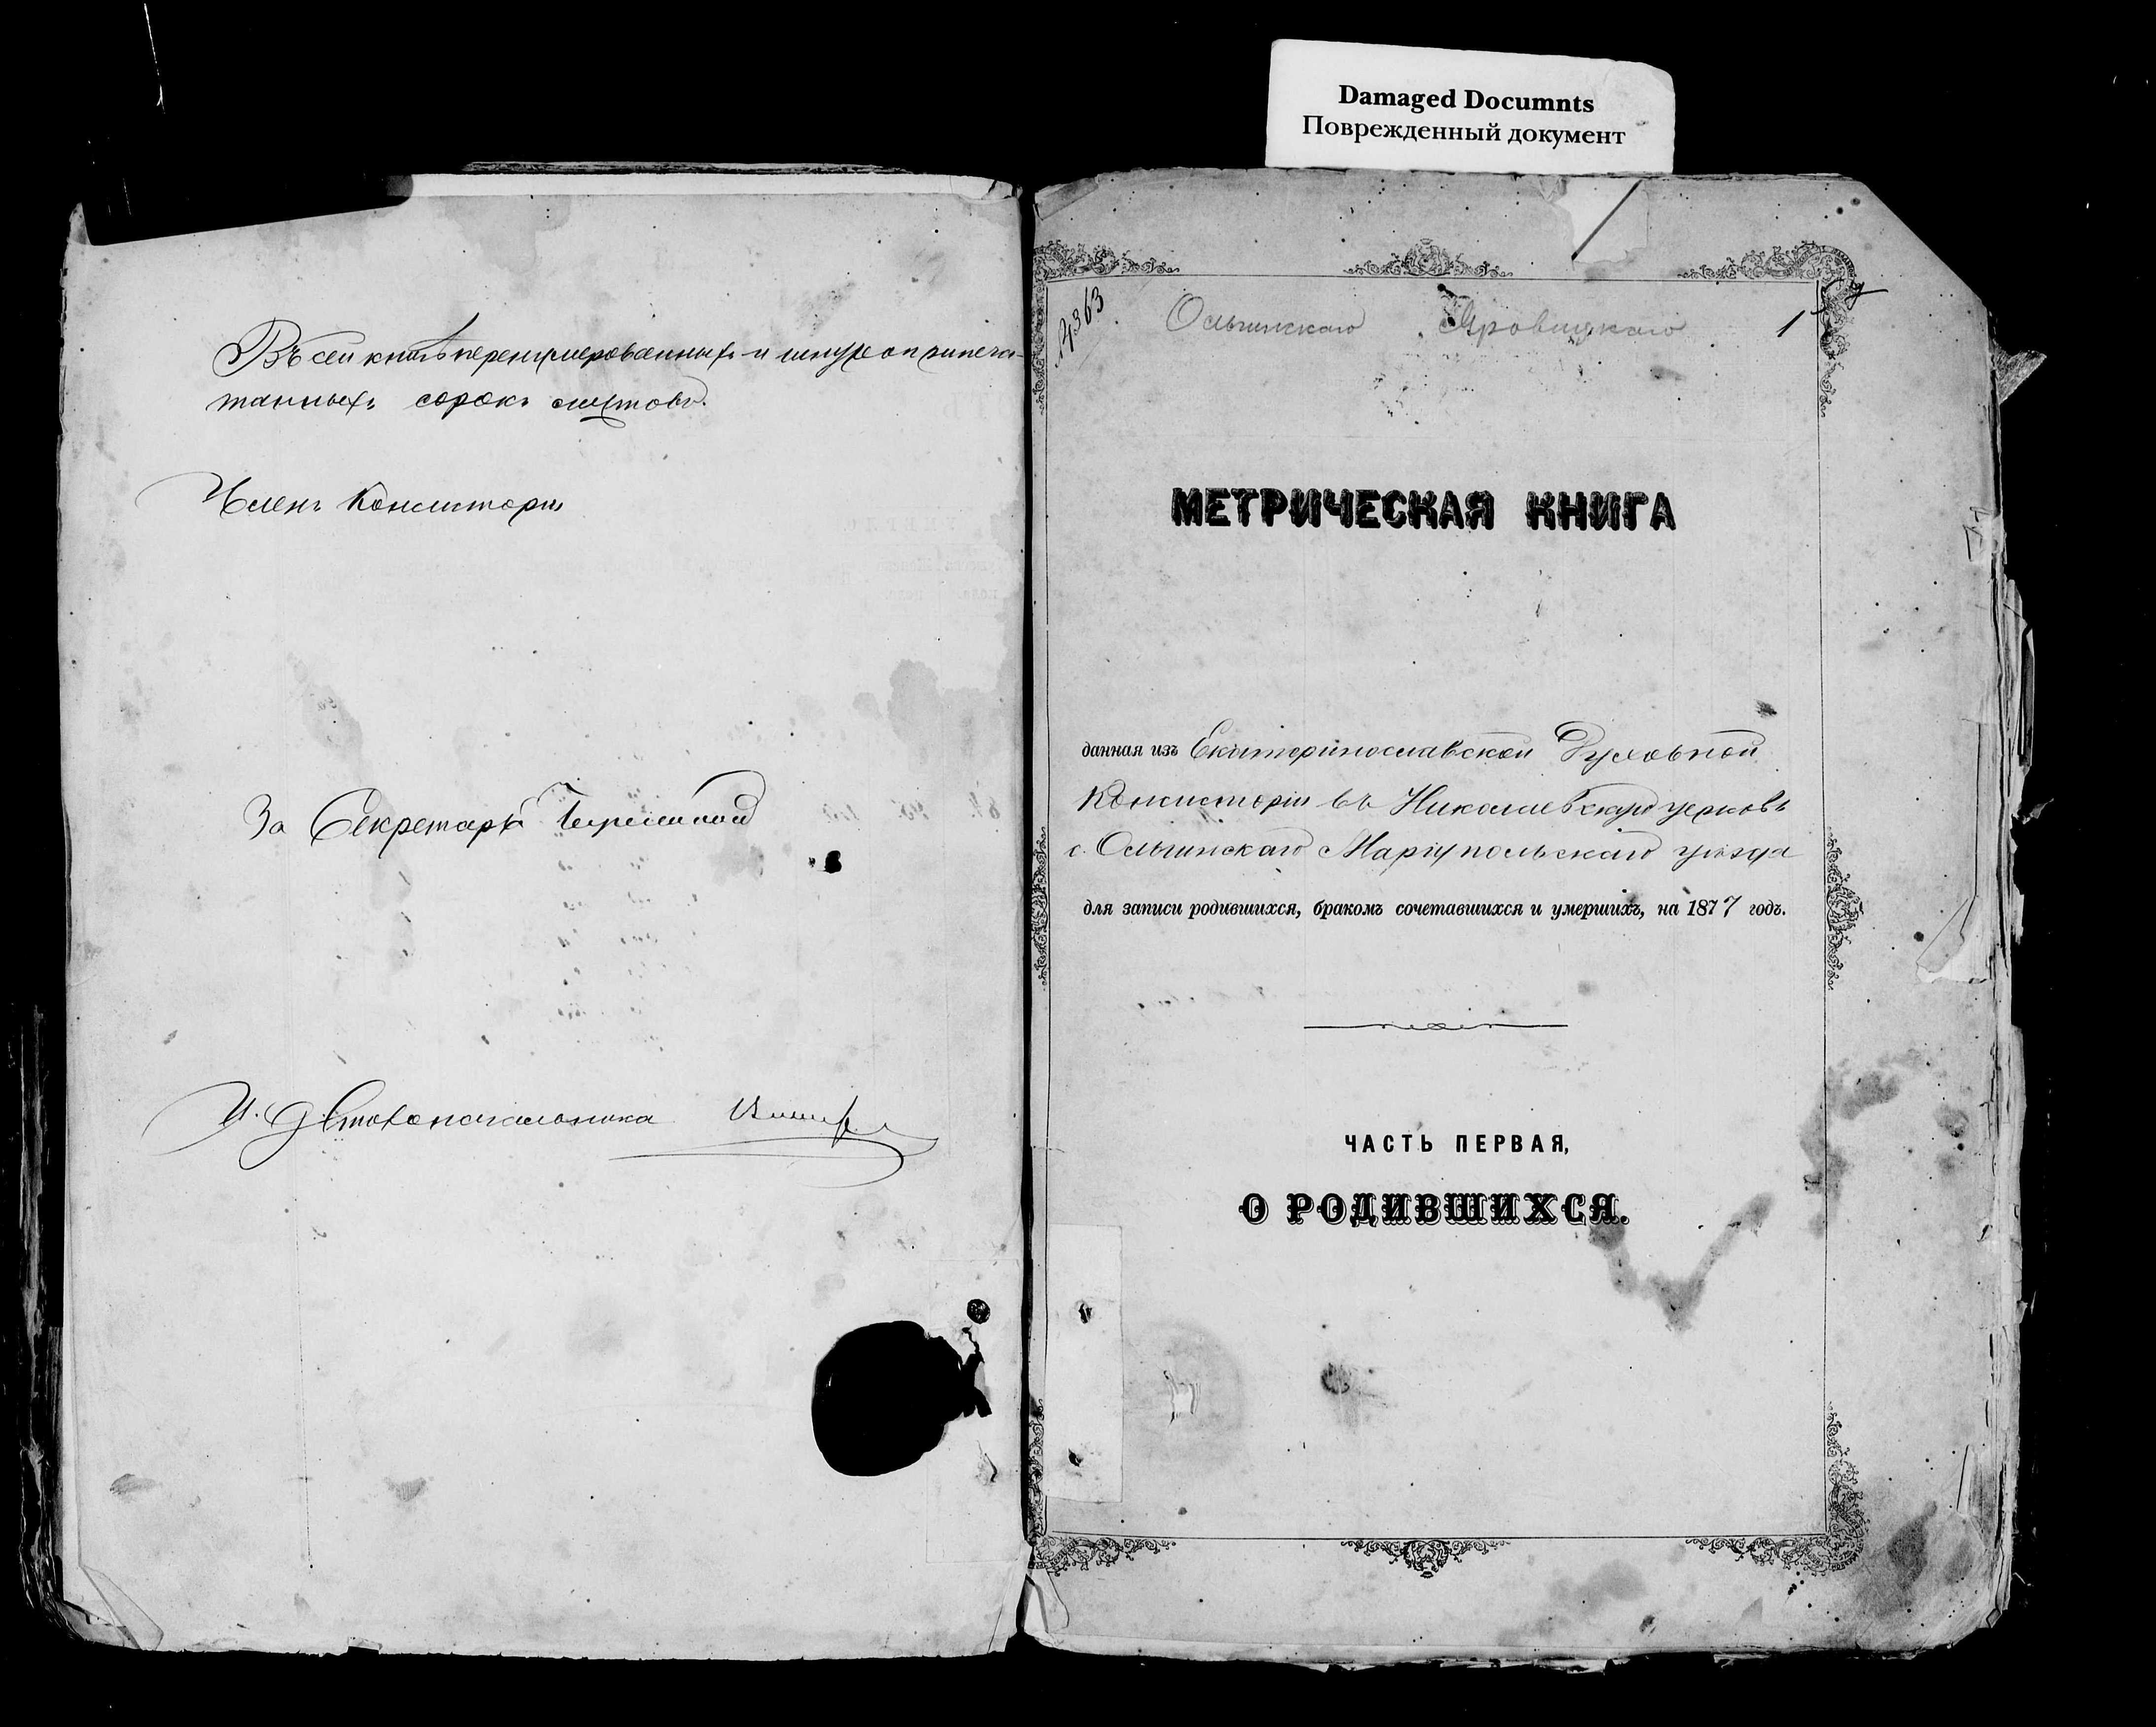 Damaged Documnts
Поврежденный документ
Въ сей книгѣ перенумерованныхъ и шнуроприпеча-
танныхъ сорокъ листовъ.
Членъ Консисторіи
За Секретаря
И. д. Столоначальника
Ольгинскаго 1
МЕТРИЧЕСКАЯ КНИГА
данная изъ Екатеринославской Духовной
Консисторіи въ Николаевскую церковь
с. Ольгинскаго Маріупольскаго уѣзда
для записи родившихся, бракомъ сочетавшихся и умершихъ, на 1877 годъ.
ЧАСТЬ ПЕРВАЯ,
О РОДИВШИХСЯ.